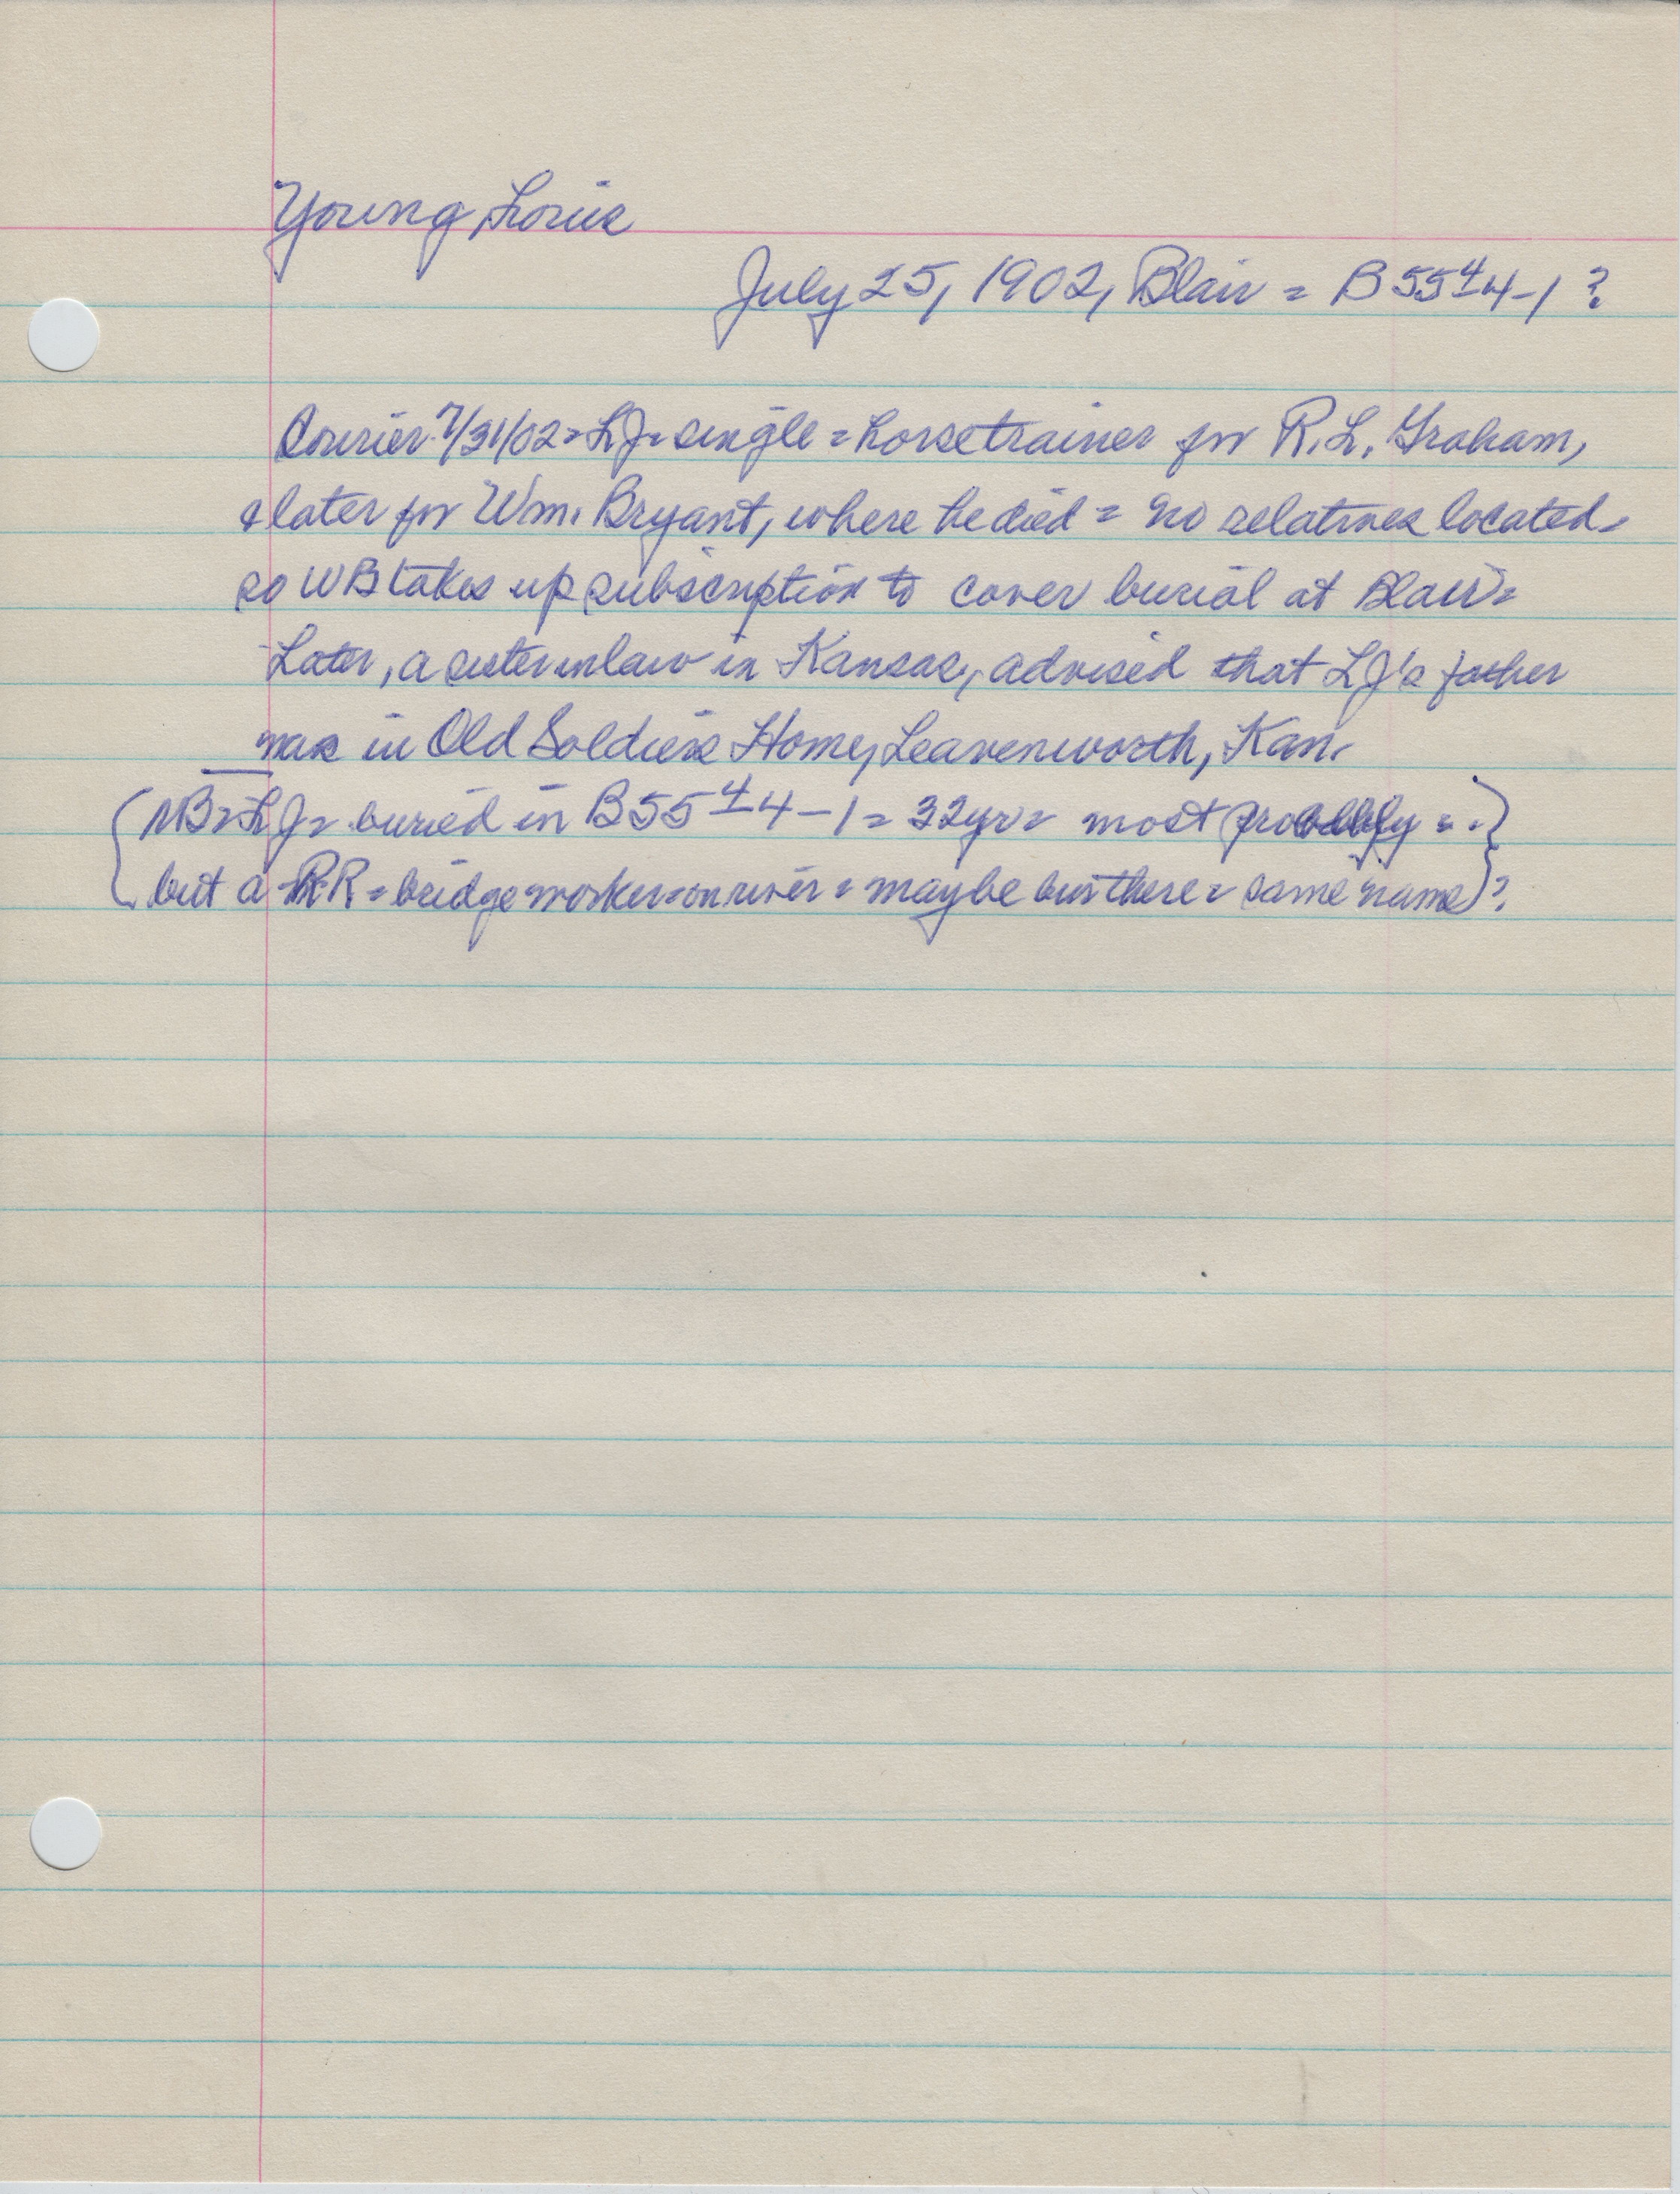 Young, Louis
July 25, 1902, Blair = B 55 4 4-1 ?
Courier 7/31/02 = LY = single = horsetrainer for R.L. Graham,
& later for Wm. Bryant, where he died = no relatives located =
so WB takes up subscription to cover burial at Blair =
Later, a sister in law in Kansas, advised that LY's father
was in Old Soldiers Home, Leavenworth, Kan.
(NB = LY = buried in B 55 4 4-1 = 32 yr = most probably = .)
but a RR = bridge worker = on river = maybe bur there = same name)?